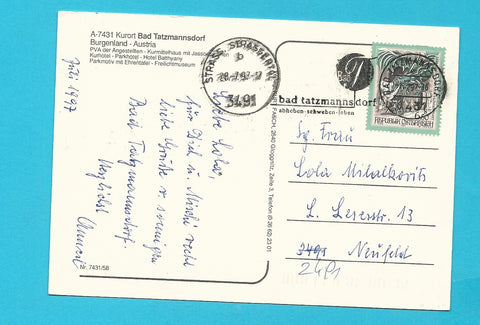 A-7431 Kurort Bad Tatzmannsdorf
Burgenland - Austria
PVA der Angestellten - Kurmittelhaus mit
Kurhotel - Parkhotel - Hotel Batthyany
Parkmotiv mit Ehrentafel - Freilichtmuseum
Juli 1997
Liebe Lola,
für Dich u. Mischi recht
liebe Grüße v. sonnigen
Bad Tatzmannsdorf.
Herzlichst
Nr. 7431/58
2640 Gloggnitz, Zeile 3, Telefon (0 26 62) 23 01
STRASS. STRASSERTAL
b
3491
bad tatzmannsdorf
abheben-schweben-leben
REPUBLIK ÖSTERREICH
Sg. Frau
Lola Mihalkovits
L. Leserstr. 13
3491 Neufeld
2491